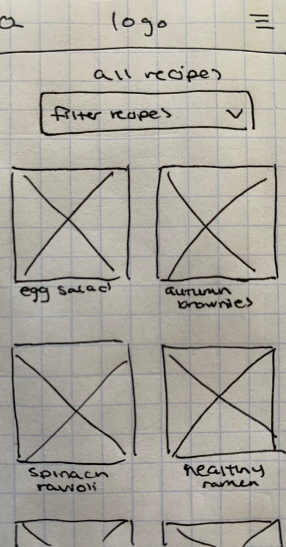 logo
all recipes
filter recipes
egg salad
autumn
brownies
spinach
ravioli
healthy
ramen